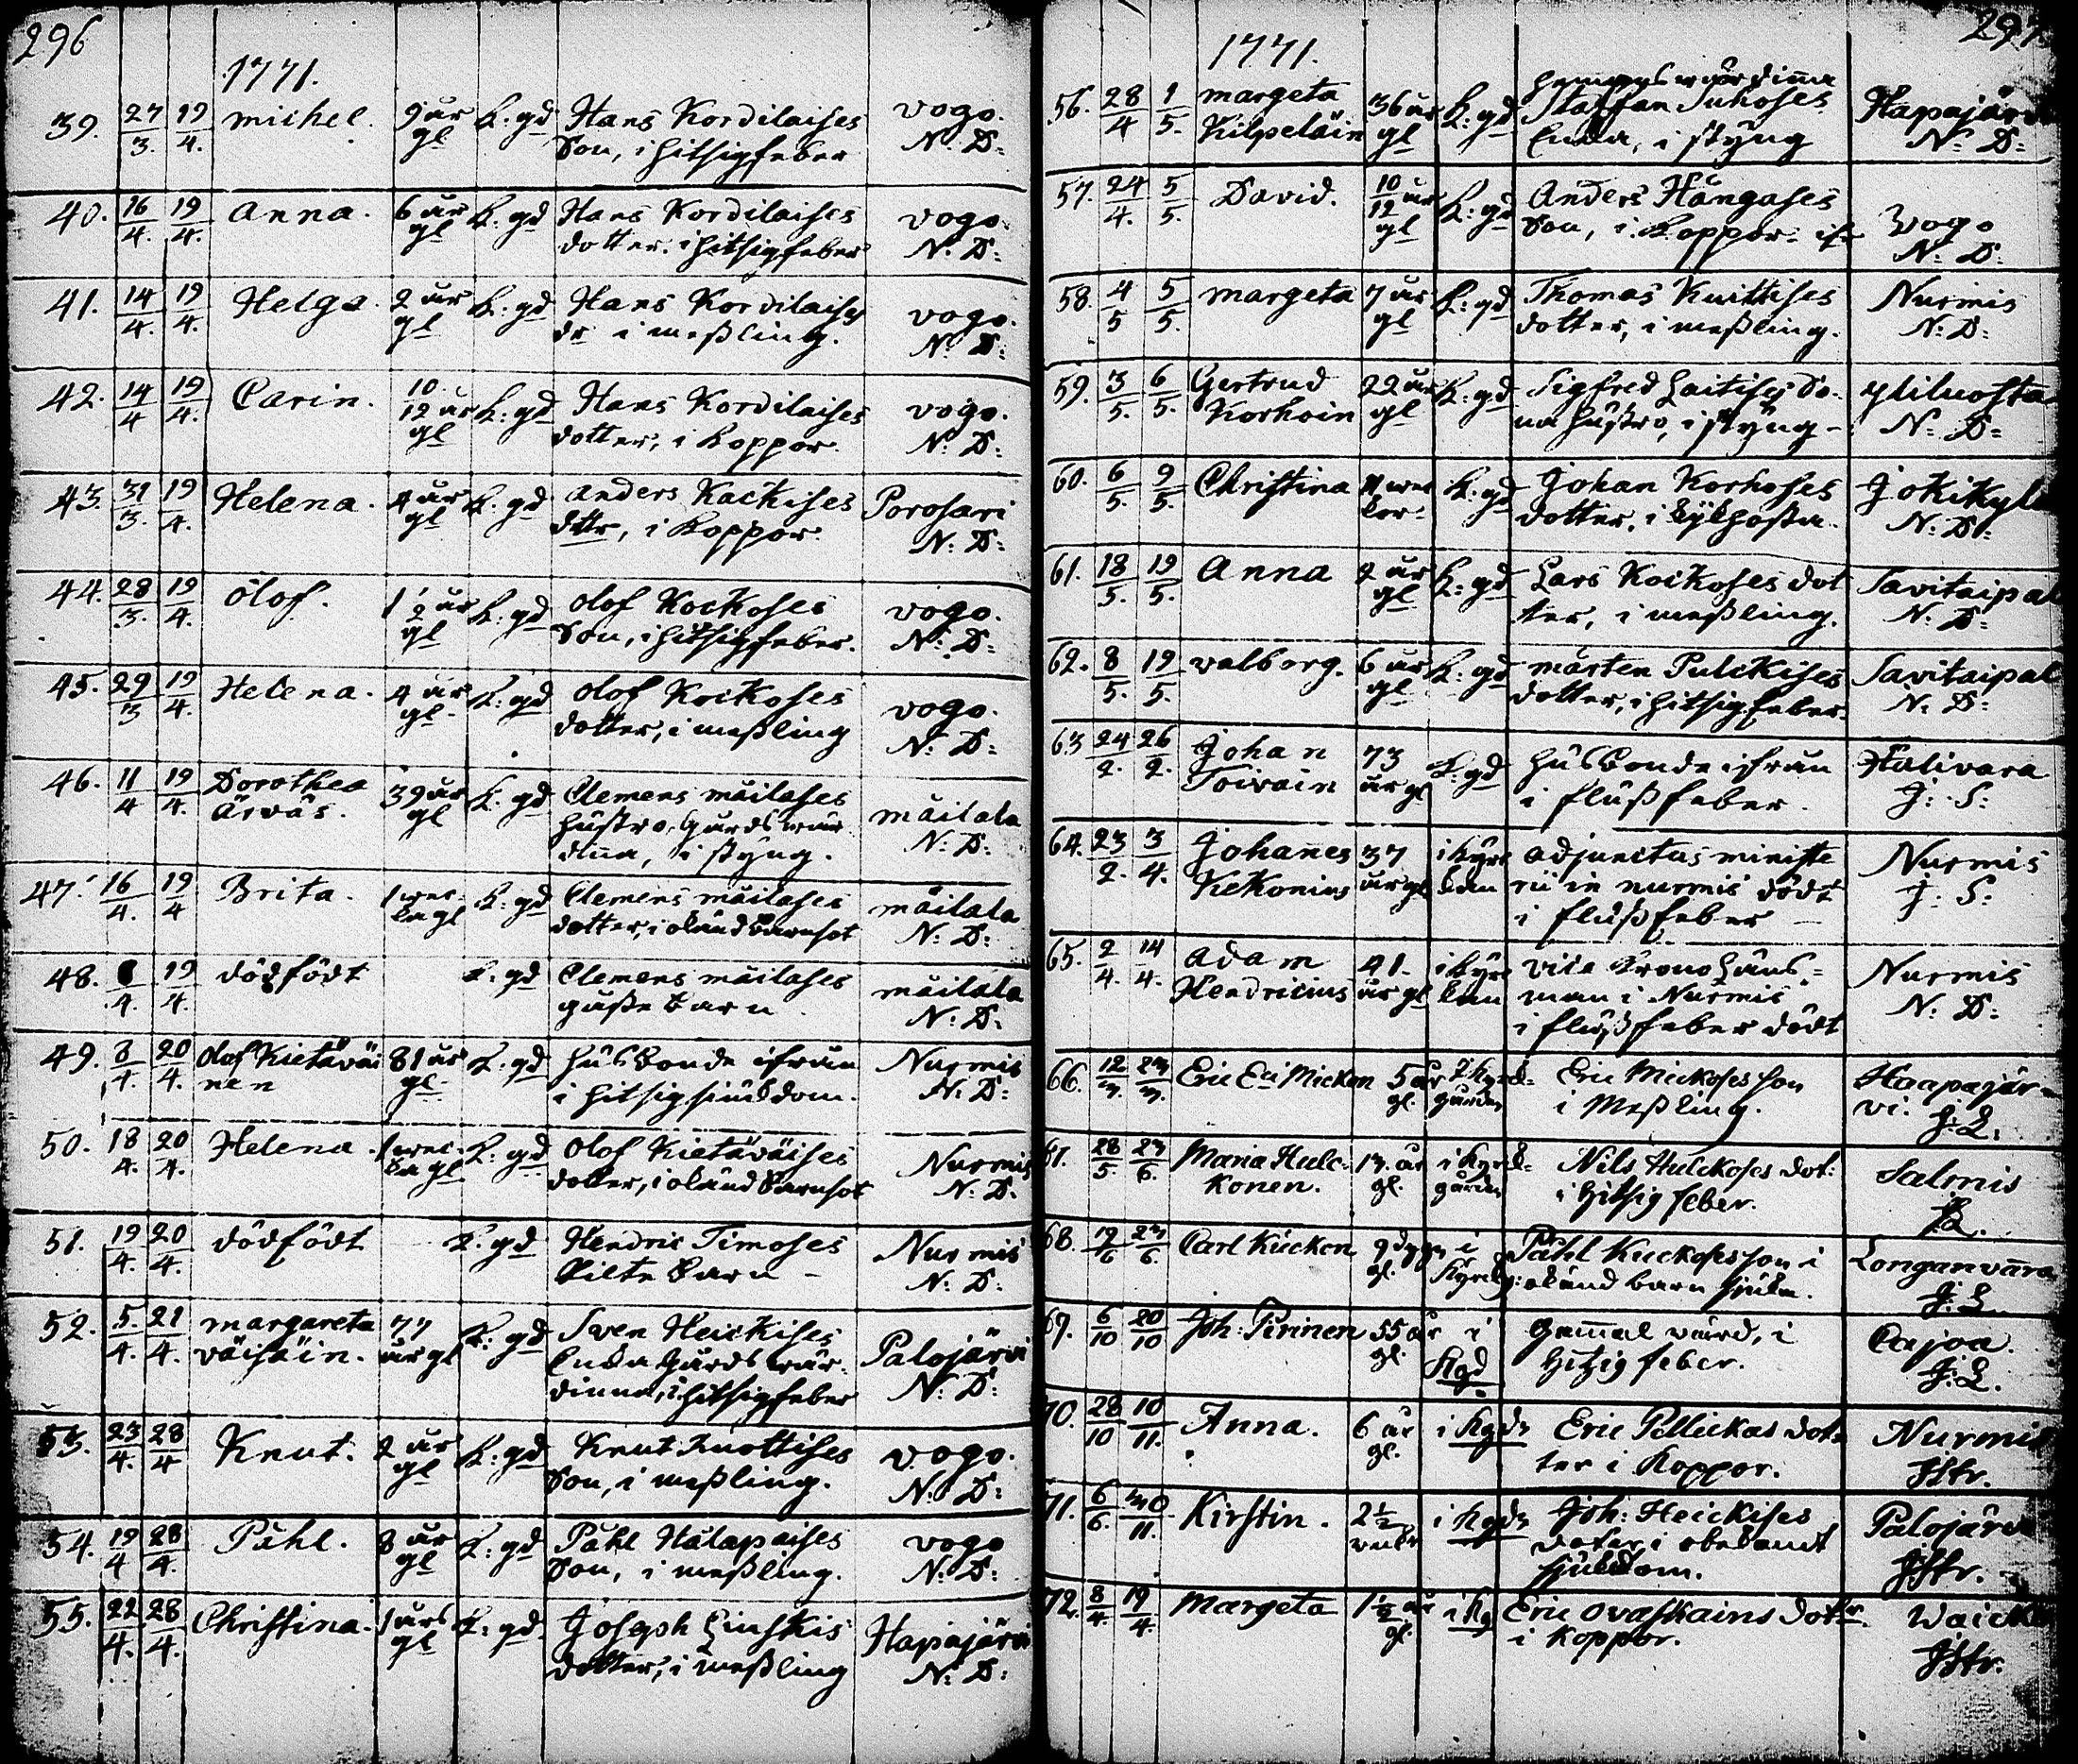 296
1771.
39. 27/3. 19/4. michel. 9 år gl k. gd Hans Kordilaises son, i hitsigfeber vogo. N: D:
40. 16/4. 19/4. Anna. 6 år gl k. gd Hans Kordilaises dotter. i hitsigfeber vogo. N: D:
41. 14/4. 19/4. Helga. 2 år gl k. gd Hans Kordilaises dr i meßling. vogo. N: D:
42. 14/4 19/4. Carin. 10/12 år gl k. gd Hans Kordilaises dotter, i koppor. vogo. N: D:
43. 31/3. 19/4. Helena. 4 år gl k. gd Anders Kackises dttr, i koppor. Porosari N: D:
44. 28/3. 19/4. Olof. 1 1/2 år gl k. gd Olof Kockoses son, i hitsigfeber. vogo. N: D:
45. 29/3 19/4. Helena. 4 år gl. k. gd Olof Kockoses dotter, i meßling vogo. N: D:
46. 11/4 19/4. Dorothea Ärväs. 39 år gl k. gd Clemens mäilases hustro, gårds wärdina, i styng. mäilala N: D:
47. 16/4. 19/4 Brita. 1 wecka gl k. gd Clemens mäilases dotter, i okänd barnsot mäilala N: D:
48. /4. 19/4. dödfödt k. gd Clemens mäilases gåsse barn mäilala N: D:
49. 8/4. 20/4. Olof Kietäväinen 81 år gl. k. gd husbonde ifrån i hitsig siukdom. Nurmis N: D:
50. 18/4. 20/4. Helena. 1 wecka gl k. gd Olof Kietäväises dotter, i okänd barnsot Nurmis N: D.
51. 19/4. 20/4. dödfödt k. gd Hendric Timoses Pilte barn Nurmis N: D:
52. 5./4. 21/4. margareta väisäin. 77 år gl k. gd Sven Heickises Enka gårds wärdinna, i hitsigfeber Palojärvi N: D:
53. 23/4. 28/4 Knut. 2 år gl k: gd Knut Knottises son, i meßling. vogo. N: D:
54. 19/4 28/4. Påhl. 8 år gl k. gd Påhl Hålapaises son, i meßling. vogo N: D:
55. 22/4. 28/4. Christina. 1 års gl k. gd. Joseph Linskis dotter, i meßling Hapajärvi N: D:
297.
1771.
56. 28/4 1/5. margeta Kilpeläin 36 år gl k: gd wärdinna Staffan Juhoses Enka, i styng Hapajärvi N: D:
57. 24/4. 5/5. David. 10/12 år gl k: gd Anders Hångases son, i koppor vogo N: D:
58. 4/5 5/5. margeta 7 år gl k: gd Thomas Knittises dotter, i meßling. Nurmis N: D:
59. 3/5. 6/5. Gertrud Korhoin 22 år gl k: gd Sigfred Laitises Sona hustro, i styng Yliluosta N: D:
60. 6/5. 9/5. Christina 11 weckor k. gd Johan Korhoses dotter, i kykhosta. Jokikylä N: D:
61. 18/5. 19/5. Anna 2 år gl k: gd Lars Kockoses dotter, i meßling. Savitaipal N: D:
62. 8/5. 19/5. valborg. 6 år gl k: gd mårten Pulckises dotter, i hitsigfeber. Savitaipal N: D:
63 24/2. 26/2. Johan Toivain 73 år gl k. gd husbonde ifrån i flußfeber. Halivara J: S:
64. 23/2. 3/4. Johanes Kekonius 37 år gl i kyrckan adjunctus ministerii in nurmis dödt i flußfeber Nurmis J: S:
65. 2/4. 14/4. Adam Hendricius 41 år gl i kyrckan vice Krono Länsman i Nurmis i flußfeber dödt Nurmis N: D:
66. 12/3. 23/3. Eric 5 år gl. i kyrckgården Eric Mickoses son i Meßling. Haapajärvi. J: L.
67. 28/5. 23/6. Maria Hulckonen. 13. år gl. i kyrckgården Nils Hulckoses dot: i hitsig feber. Salmis
68. 12/6 23/6. Carl Kücken gl. i Kyrckg: Påhl Kuckoses son i okänd barn sjukd. Longanvaara J: L
69. 6/10 20/10 Joh: Pirinen 55 år gl. i Kgd Gammal vard, i hitzig feber. Cajoa. J: L.
70. 28/10 10/11. Anna. 6 år gl. i Kgdn Eric Pellickas dotter i koppor. Nurmis JStr.
71. 6/6. 30/11. Kirstin. 2 1/2 i Kgdn Joh: Heickises doter i obekandt sjukdom. Palojärvi JStr.
72. 8/4. 19/4. Margeta 1 1/2 år gl. i Kg Eric Ovaskains dotr. i koppor. Waicko JStr.